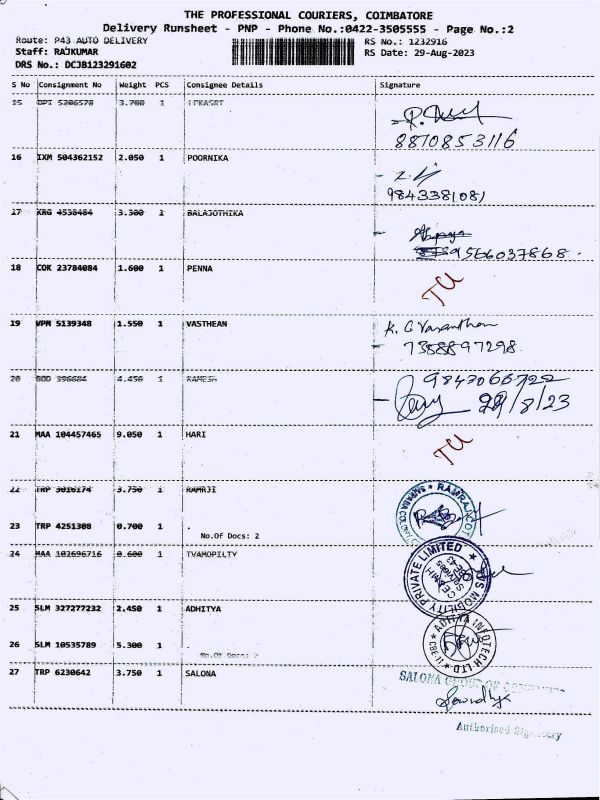 THE PROFESSIONAL COURIERS, COIMBATORE
Delivery Runsheet - PNP - Phone No.:0422-3505555 - Page No.:2
Route: P43 AUTO DELIVERY RS No.: 1232916
Staff: RAJKUMAR RS Date: 29-Aug-2023
DRS No.: DCJB123291602
S No Consignment No Weight PCS Consignee Details Signature
15 3.700 1
8870853116
16 IXM 504362152 2.050 1 POORNIKA
9843381081
17 KRG 4538484 3.300 1 BALAJOTHIKA
9566037868
18 COK 23784084 1.600 1 PENNA
TU
19 VPM 5139348 1.550 1 VASTHEAN
K. G Vasanthan
7358897298
20 4.450 1 RAMESH
29/8/23
21 MAA 104457465 9.050 1 HARI
TU
22 TRP 3016174 3.750 1 RAMRJI
23 TRP 4251308 0.700 1 .
No.Of Docs: 2
24 MAA 102696716 0.600 1 TVAMOPILTY
MOBILITY PRIVATE LIMITED
25 SLM 327277232 2.450 1 ADHITYA
26 SLM 10535789 5.300 1 .
No.Of Docs: 2
INFOTECH LTD
27 TRP 6230642 3.750 1 SALONA
SALONA GROUP OF
Authorised Signatory